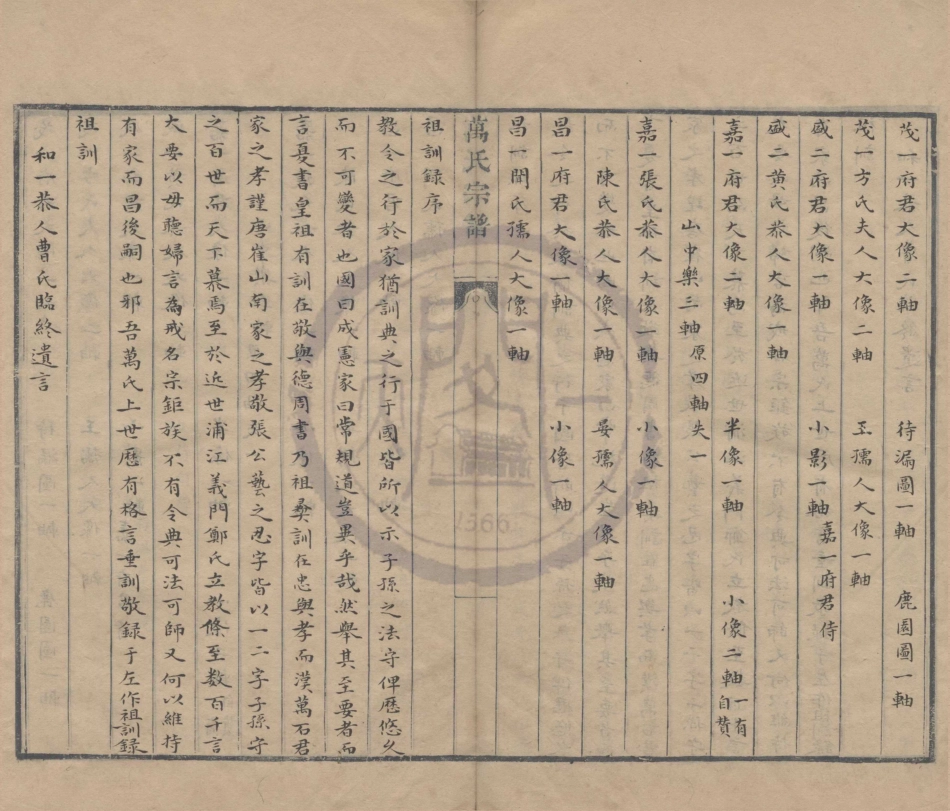 茂一府君大像二軸　待漏圖一軸　鹿園圖一軸
茂一方氏夫人大像二軸　王孺人大像一軸
盛二府君大像一軸　小影一軸嘉一府君侍
盛二黄氏恭人大像一軸
嘉一府君大像二軸　半像一軸　小像二軸一有自贊
山中樂三軸原四軸失一
嘉一張氏恭人大像一軸　小像一軸
陳氏恭人大像一軸　晏孺人大像一軸
昌一府君大像一軸　小像一軸
昌一聞氏孺人大像一軸
萬氏宗譜
祖訓録序
教令之行於家猶訓典之行于國皆所以示子孫之法守俾歷悠久
而不可變者也國曰成憲家曰常規道豈異乎哉然舉其至要者而
言夏書皇祖有訓在敬與德周書乃祖彝訓在忠與孝而漢萬石君
家之孝謹唐崔山南家之孝敬張公藝之忍字皆以一二字子孫守
之百世而天下慕焉至於近世浦江義門鄭氏立教條至數百千言
大要以毋聽婦言為戒名宗鉅族不有令典可法可師又何以維持
有家而昌後嗣也邪吾萬氏上世歷有格言垂訓敬録于左作祖訓録
祖訓
和一恭人曹氏臨終遺言
1566